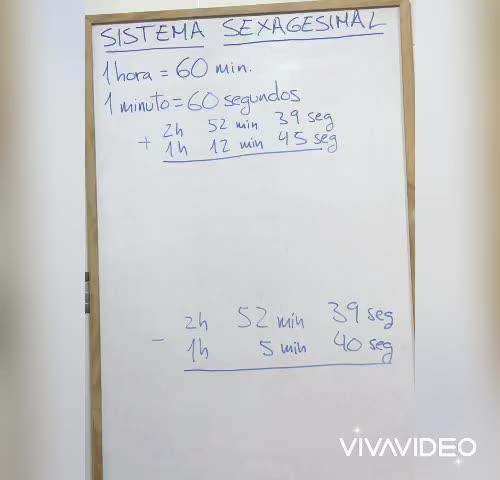 SISTEMA SEXAGESIMAL
1 hora = 60 min.
1 minuto = 60 segundos
2h 52 min 39 seg
+ 1h 12 min 45 seg
2h 52 min 39 seg
- 1h 5 min 40 seg
VIVAVIDEO